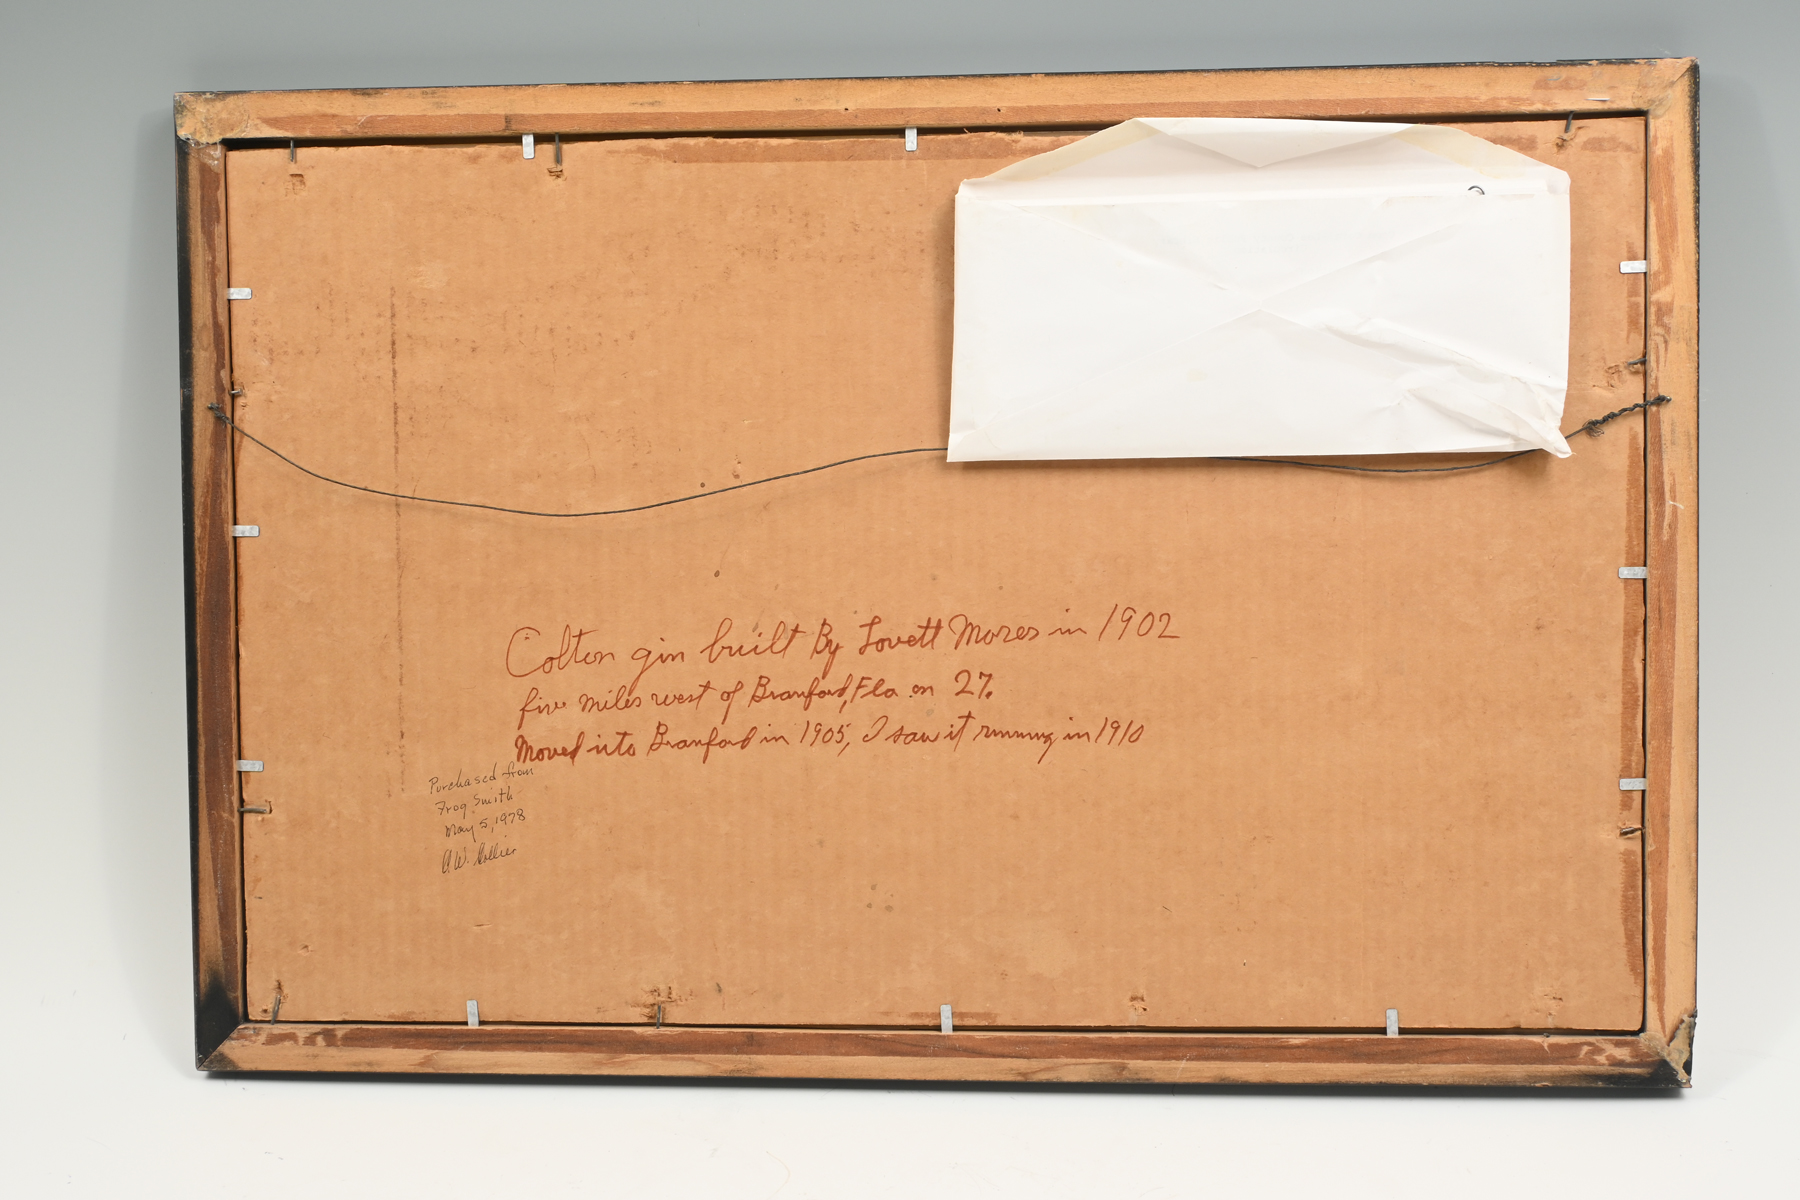 Cotton gin built By Lovett Mozes in 1902
five miles west of Branford, Fla. on 27.
Moved into Branford in 1905, I saw it running in 1910
Purchased from
Frog Smith
May 5, 1978
A.W. Collier